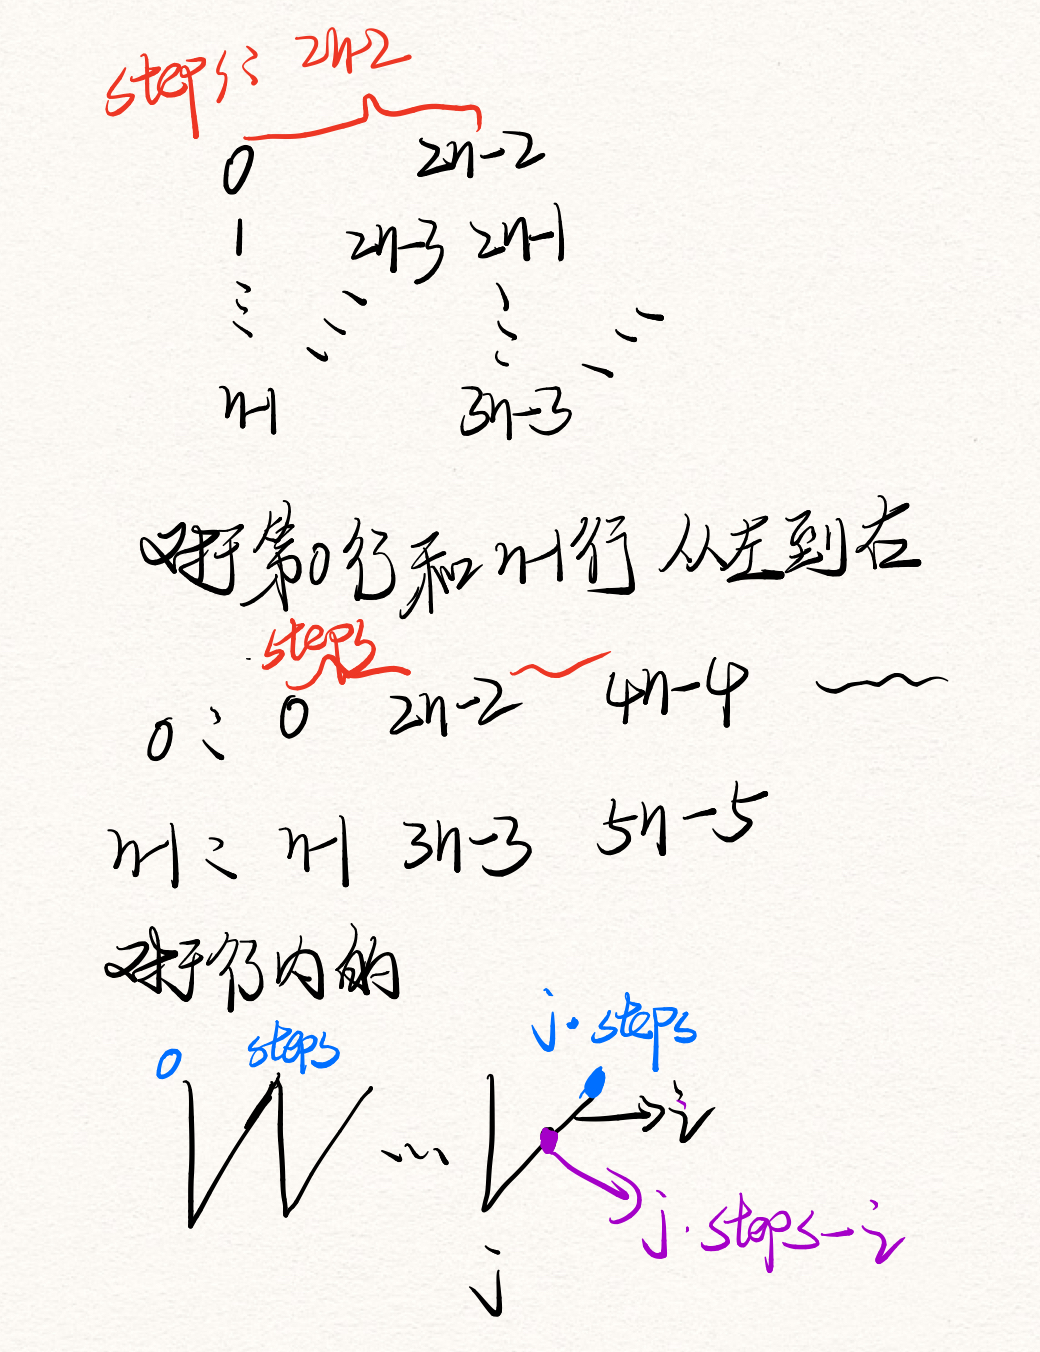 steps: 2n-2
0 2n-2
1 2n-3 2n-1
n-1 3n-3
对于第0行和n-1行 从左到右
steps
0: 0 2n-2 4n-4
n-1: n-1 3n-3 5n-5
对于行内的
j·steps
0 steps
i
j·steps-i
j